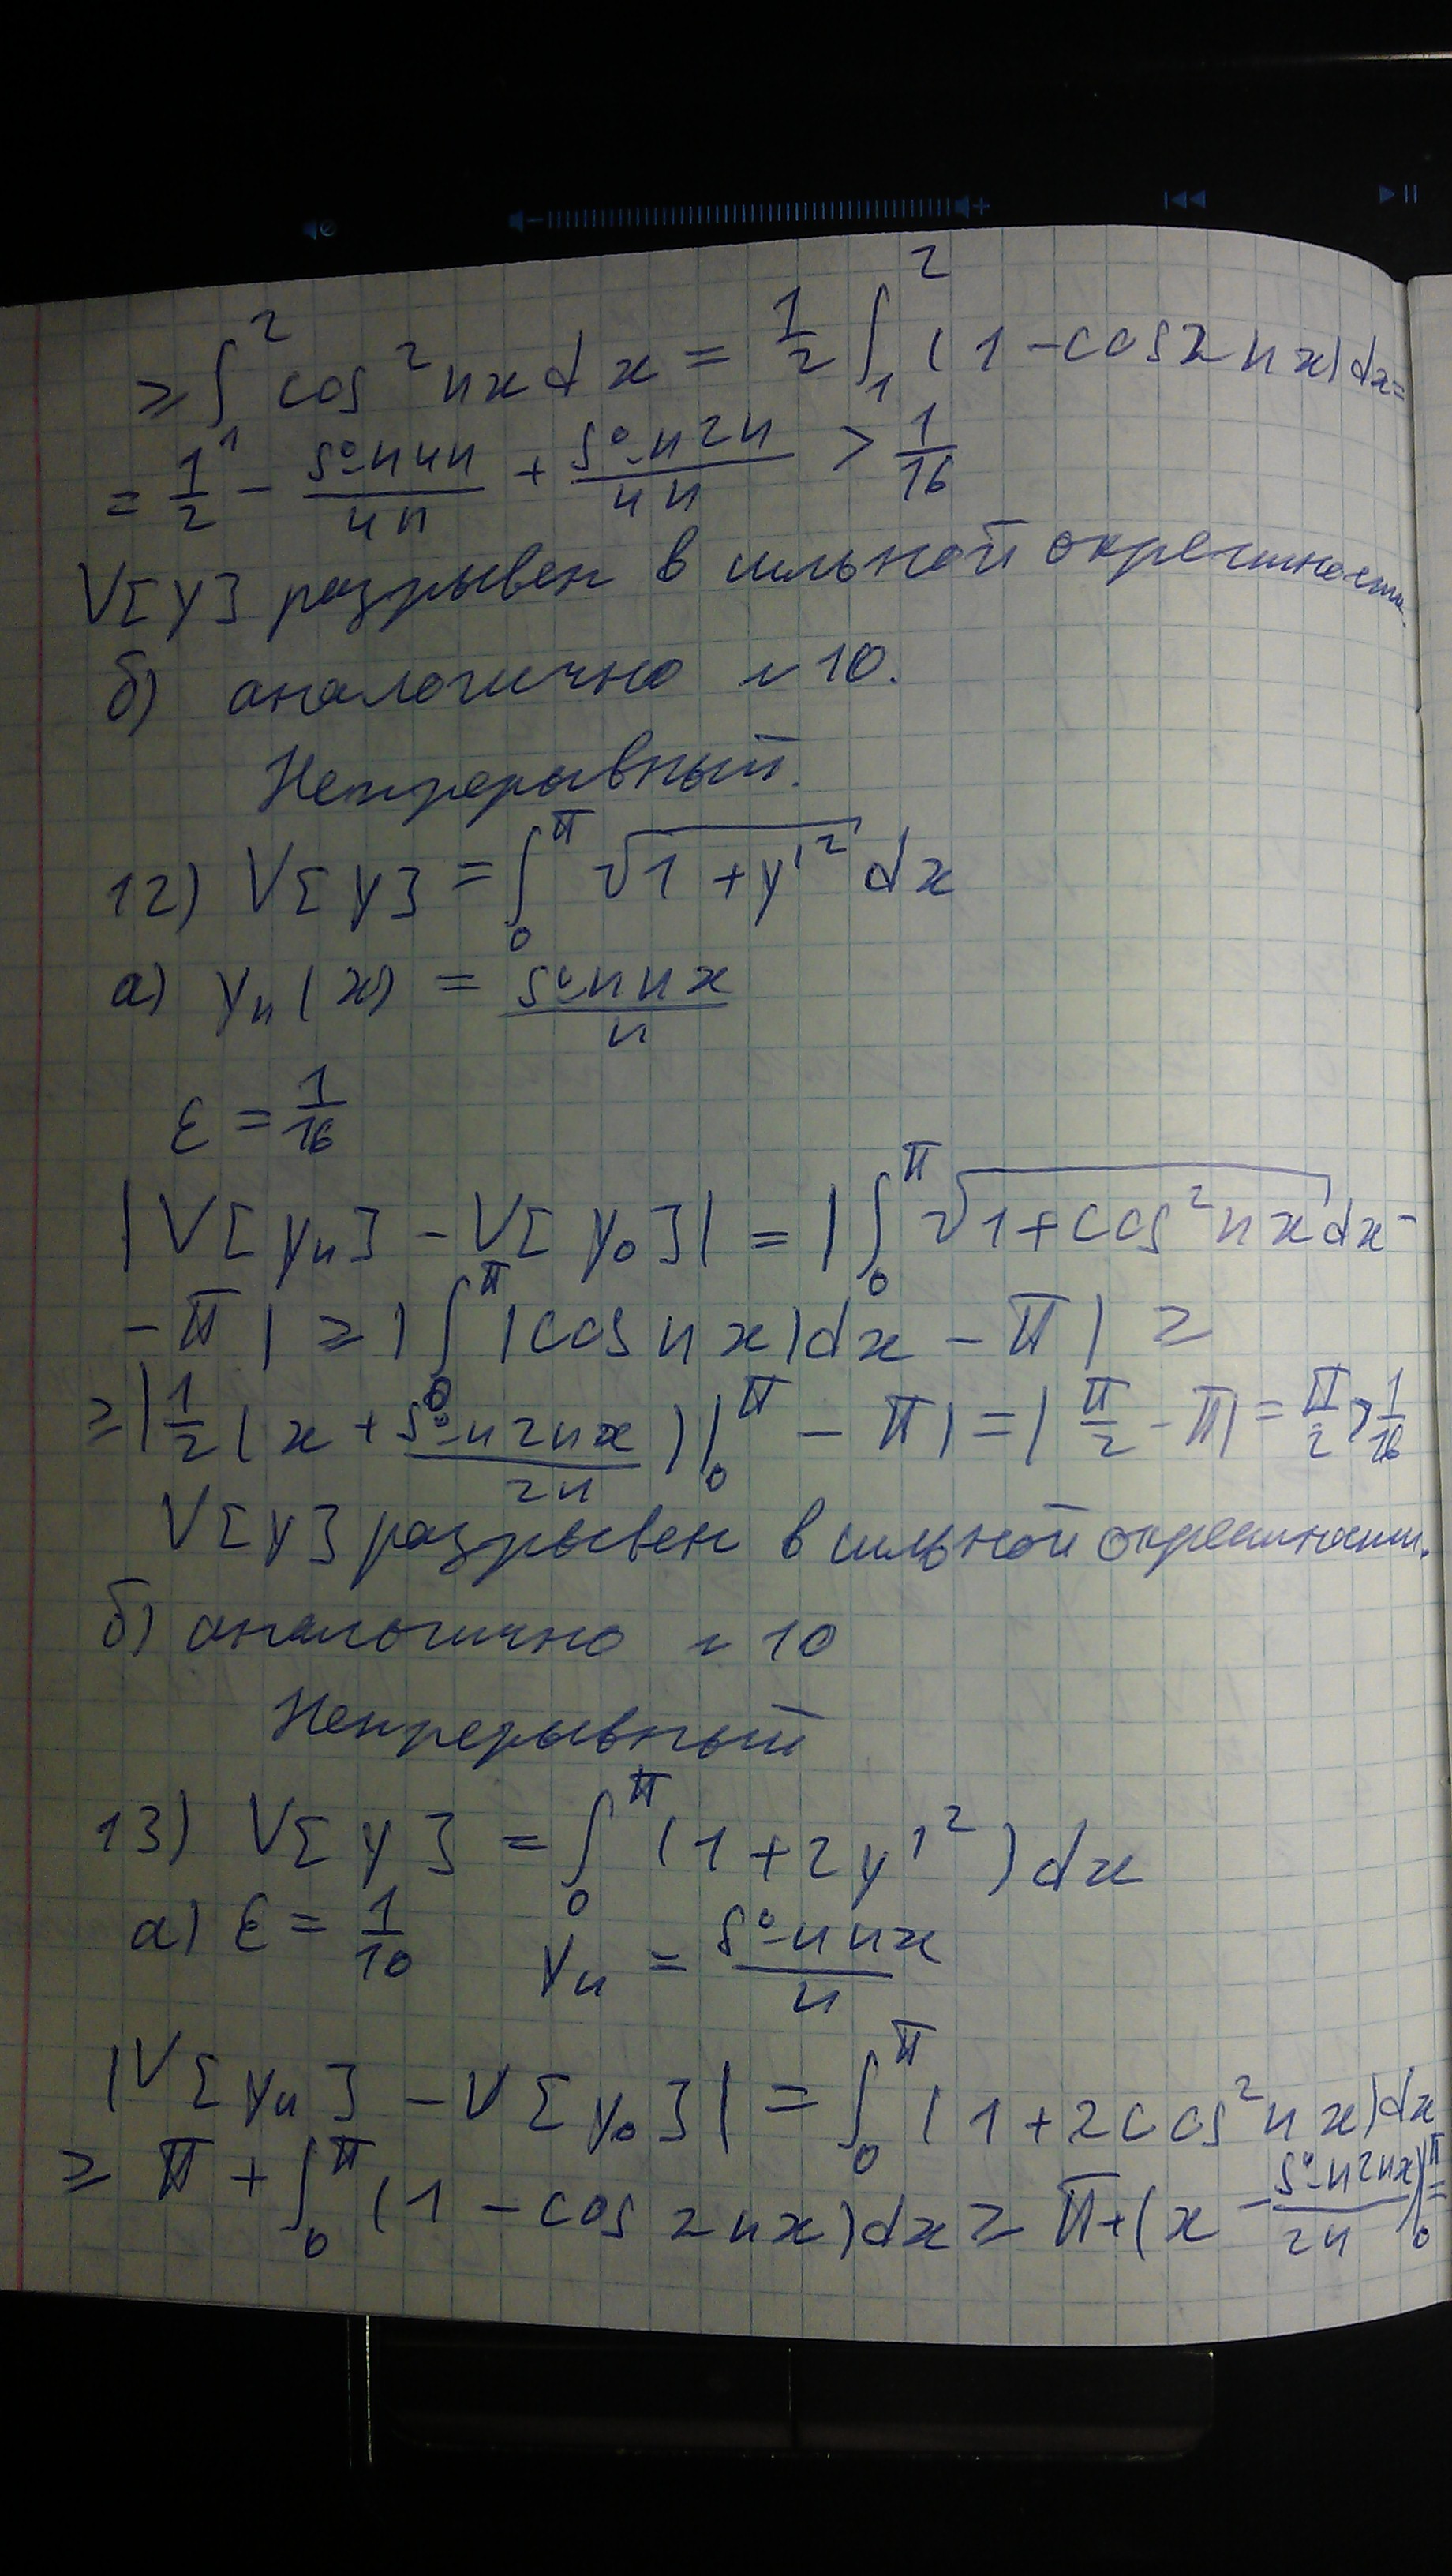 ≥ ∫₁² cos² nx dx = 1/2 ∫₁² (1 - cos 2nx) dx =
= 1/2 - sin 4n / 4n + sin 2n / 4n > 1/16
V[y] разрывен в сильной окрестности.
б) аналогично n 10.
Непрерывный.
12) V[y] = ∫₀^π √(1 + y'²) dx
а) yₙ(x) = sin nx / n
ε = 1/16
|V[yₙ] - V[y₀]| = | ∫₀^π √(1 + cos² nx) dx -
- π | ≥ | ∫₀^π |cos nx| dx - π | ≥
≥ | 1/2 (x + sin 2nx / 2n) |₀^π - π | = | π/2 - π | = π/2 > 1/16
V[y] разрывен в сильной окрестности.
б) аналогично n 10
Непрерывный
13) V[y] = ∫₀^π (1 + 2y'²) dx
а) ε = 1/10 yₙ = sin nx / n
|V[yₙ] - V[y₀]| = ∫₀^π (1 + 2cos² nx) dx
≥ π + ∫₀^π (1 - cos 2nx) dx ≥ π + (x - sin 2nx / 2n) |₀^π =